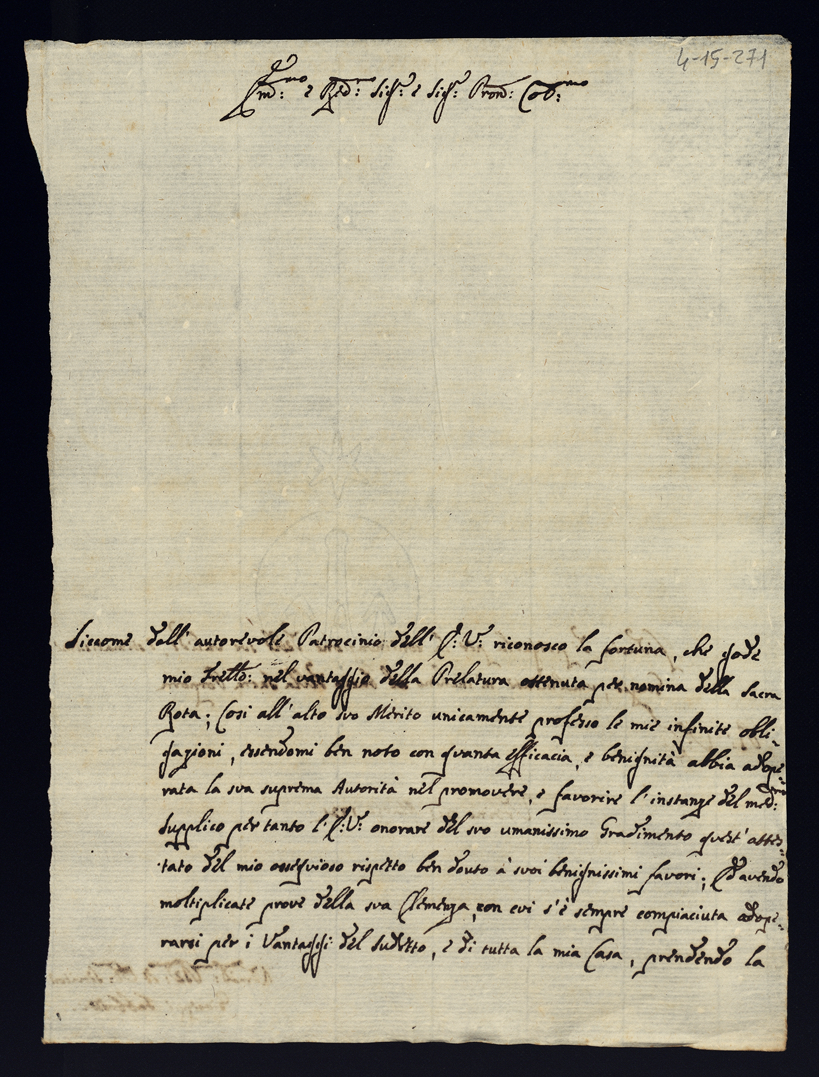 4-15-271
Em:mo e Red:mo Sig:r e Sig:r Pron: Col:mo
Siccome dall' autorevole Patrocinio dell' E: V: riconosco la fortuna, che gode
mio Fretto: nel vantaggio della Prelatura ottenuta per nomina della Sacra
Rota; Così all' alto suo Merito unicamente professo le mie infinite obli=
gazioni, essendomi ben noto con quanta efficacia, e benignità abbia adope
rata la sua suprema Autorità nel promovere, e favorire l'instanze del med:mo
Supplico per tanto l' E: V: onorare del suo umanissimo Gradimento quest' attes=
tato del mio ossequioso rispetto ben douto à suoi benignissimi favori; Ed avendo
moltiplicate prove della sua Clemenza, con cui s'è sempre compiaciuta adope=
rarsi per i Vantaggi del Sudetto, e di tutta la mia Casa, prendendo la